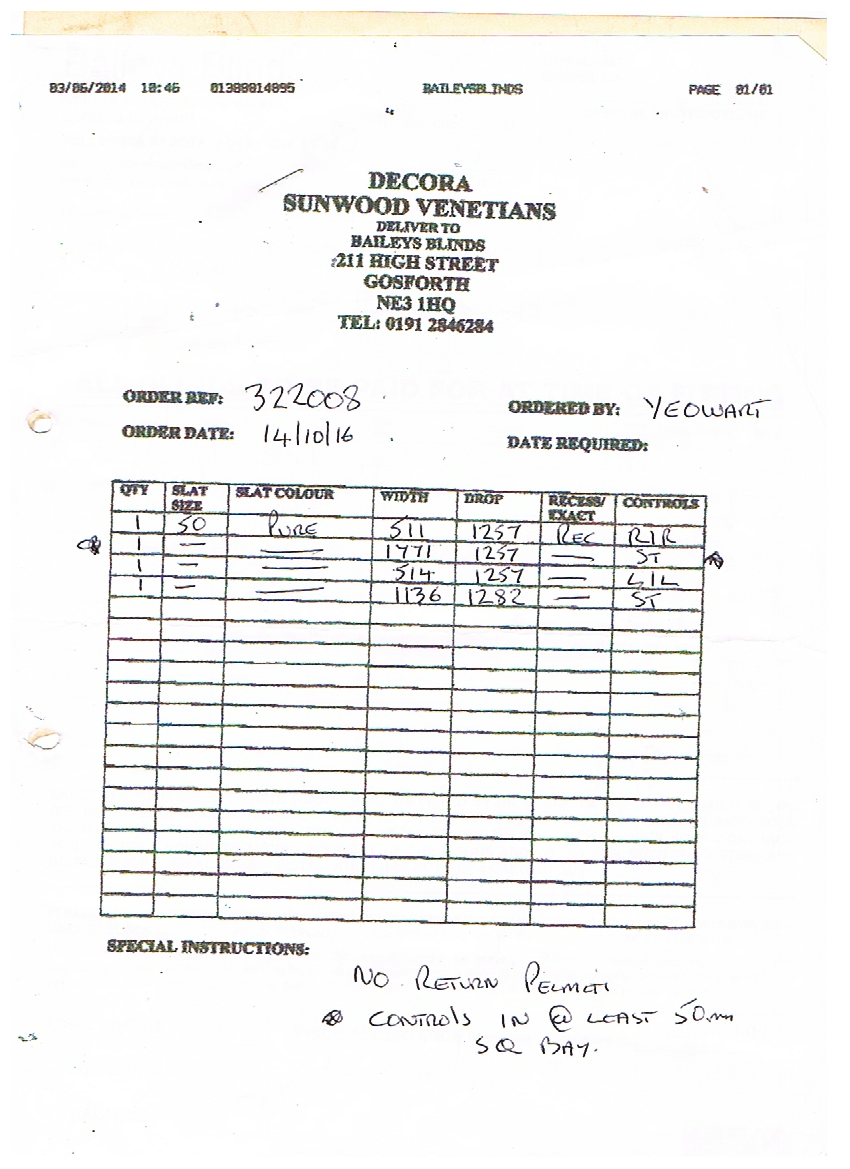 03/06/2014 10:46 01388814895 BAILEYSBLINDS PAGE 01/01
DECORA
SUNWOOD VENETIANS
DELIVER TO
BAILEYS BLINDS
211 HIGH STREET
GOSFORTH
NE3 1HQ
TEL: 0191 2846284
ORDER REF: 322008
ORDERED BY: YEOWART
ORDER DATE: 14/10/16
DATE REQUIRED:
QTY SLAT SIZE SLAT COLOUR WIDTH DROP RECESS/EXACT CONTROLS
1 50 PURE 511 1257 REC R1R
1 — — 1771 1257 — ST
1 — — 514 1257 — L1L
1 — — 1136 1282 — ST
SPECIAL INSTRUCTIONS:
NO RETURN PELMETS
* CONTROLS IN @ LEAST 50mm
SQ BAY.